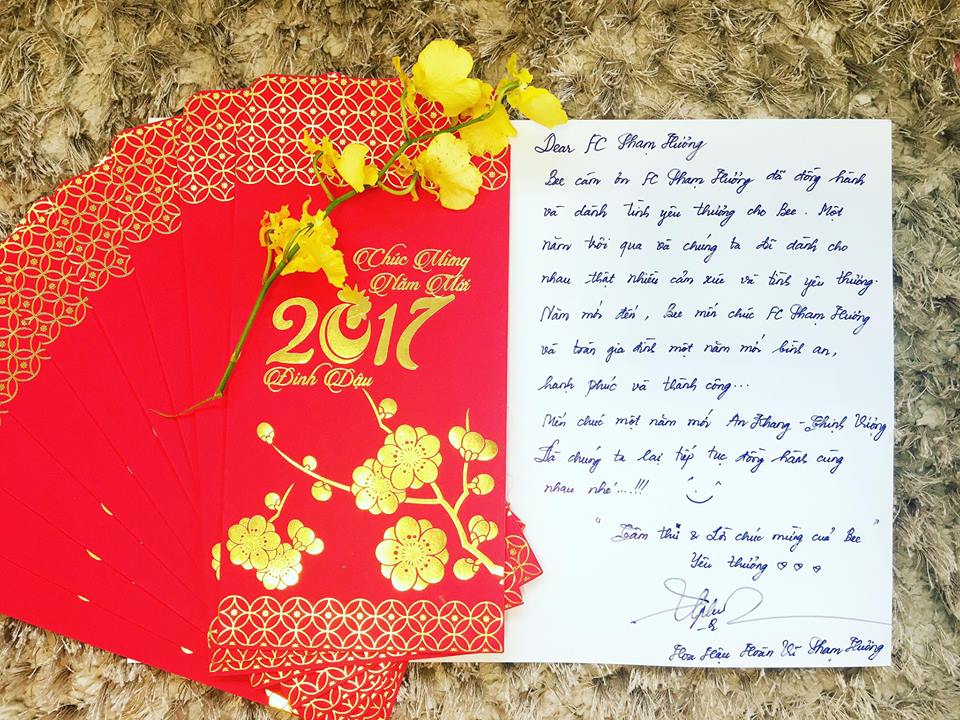 Chúc Mừng
Năm Mới
2017
Đinh Dậu
Dear FC Phạm Hương
Bee cám ơn FC Phạm Hương đã đồng hành
và dành tình yêu thương cho Bee. Một
năm trôi qua và chúng ta đã dành cho
nhau thật nhiều cảm xúc và tình yêu thương.
Năm mới đến, Bee mến chúc FC Phạm Hương
và toàn gia đình một năm mới bình an,
hạnh phúc và thành công...
Mến chúc một năm mới An Khang - Thịnh Vượng
Và chúng ta lại tiếp tục đồng hành cùng
nhau nhé....!!!
"Tâm thư & Lời chúc mừng của Bee"
Yêu thương
Hoa Hậu Hoàn Vũ Phạm Hương